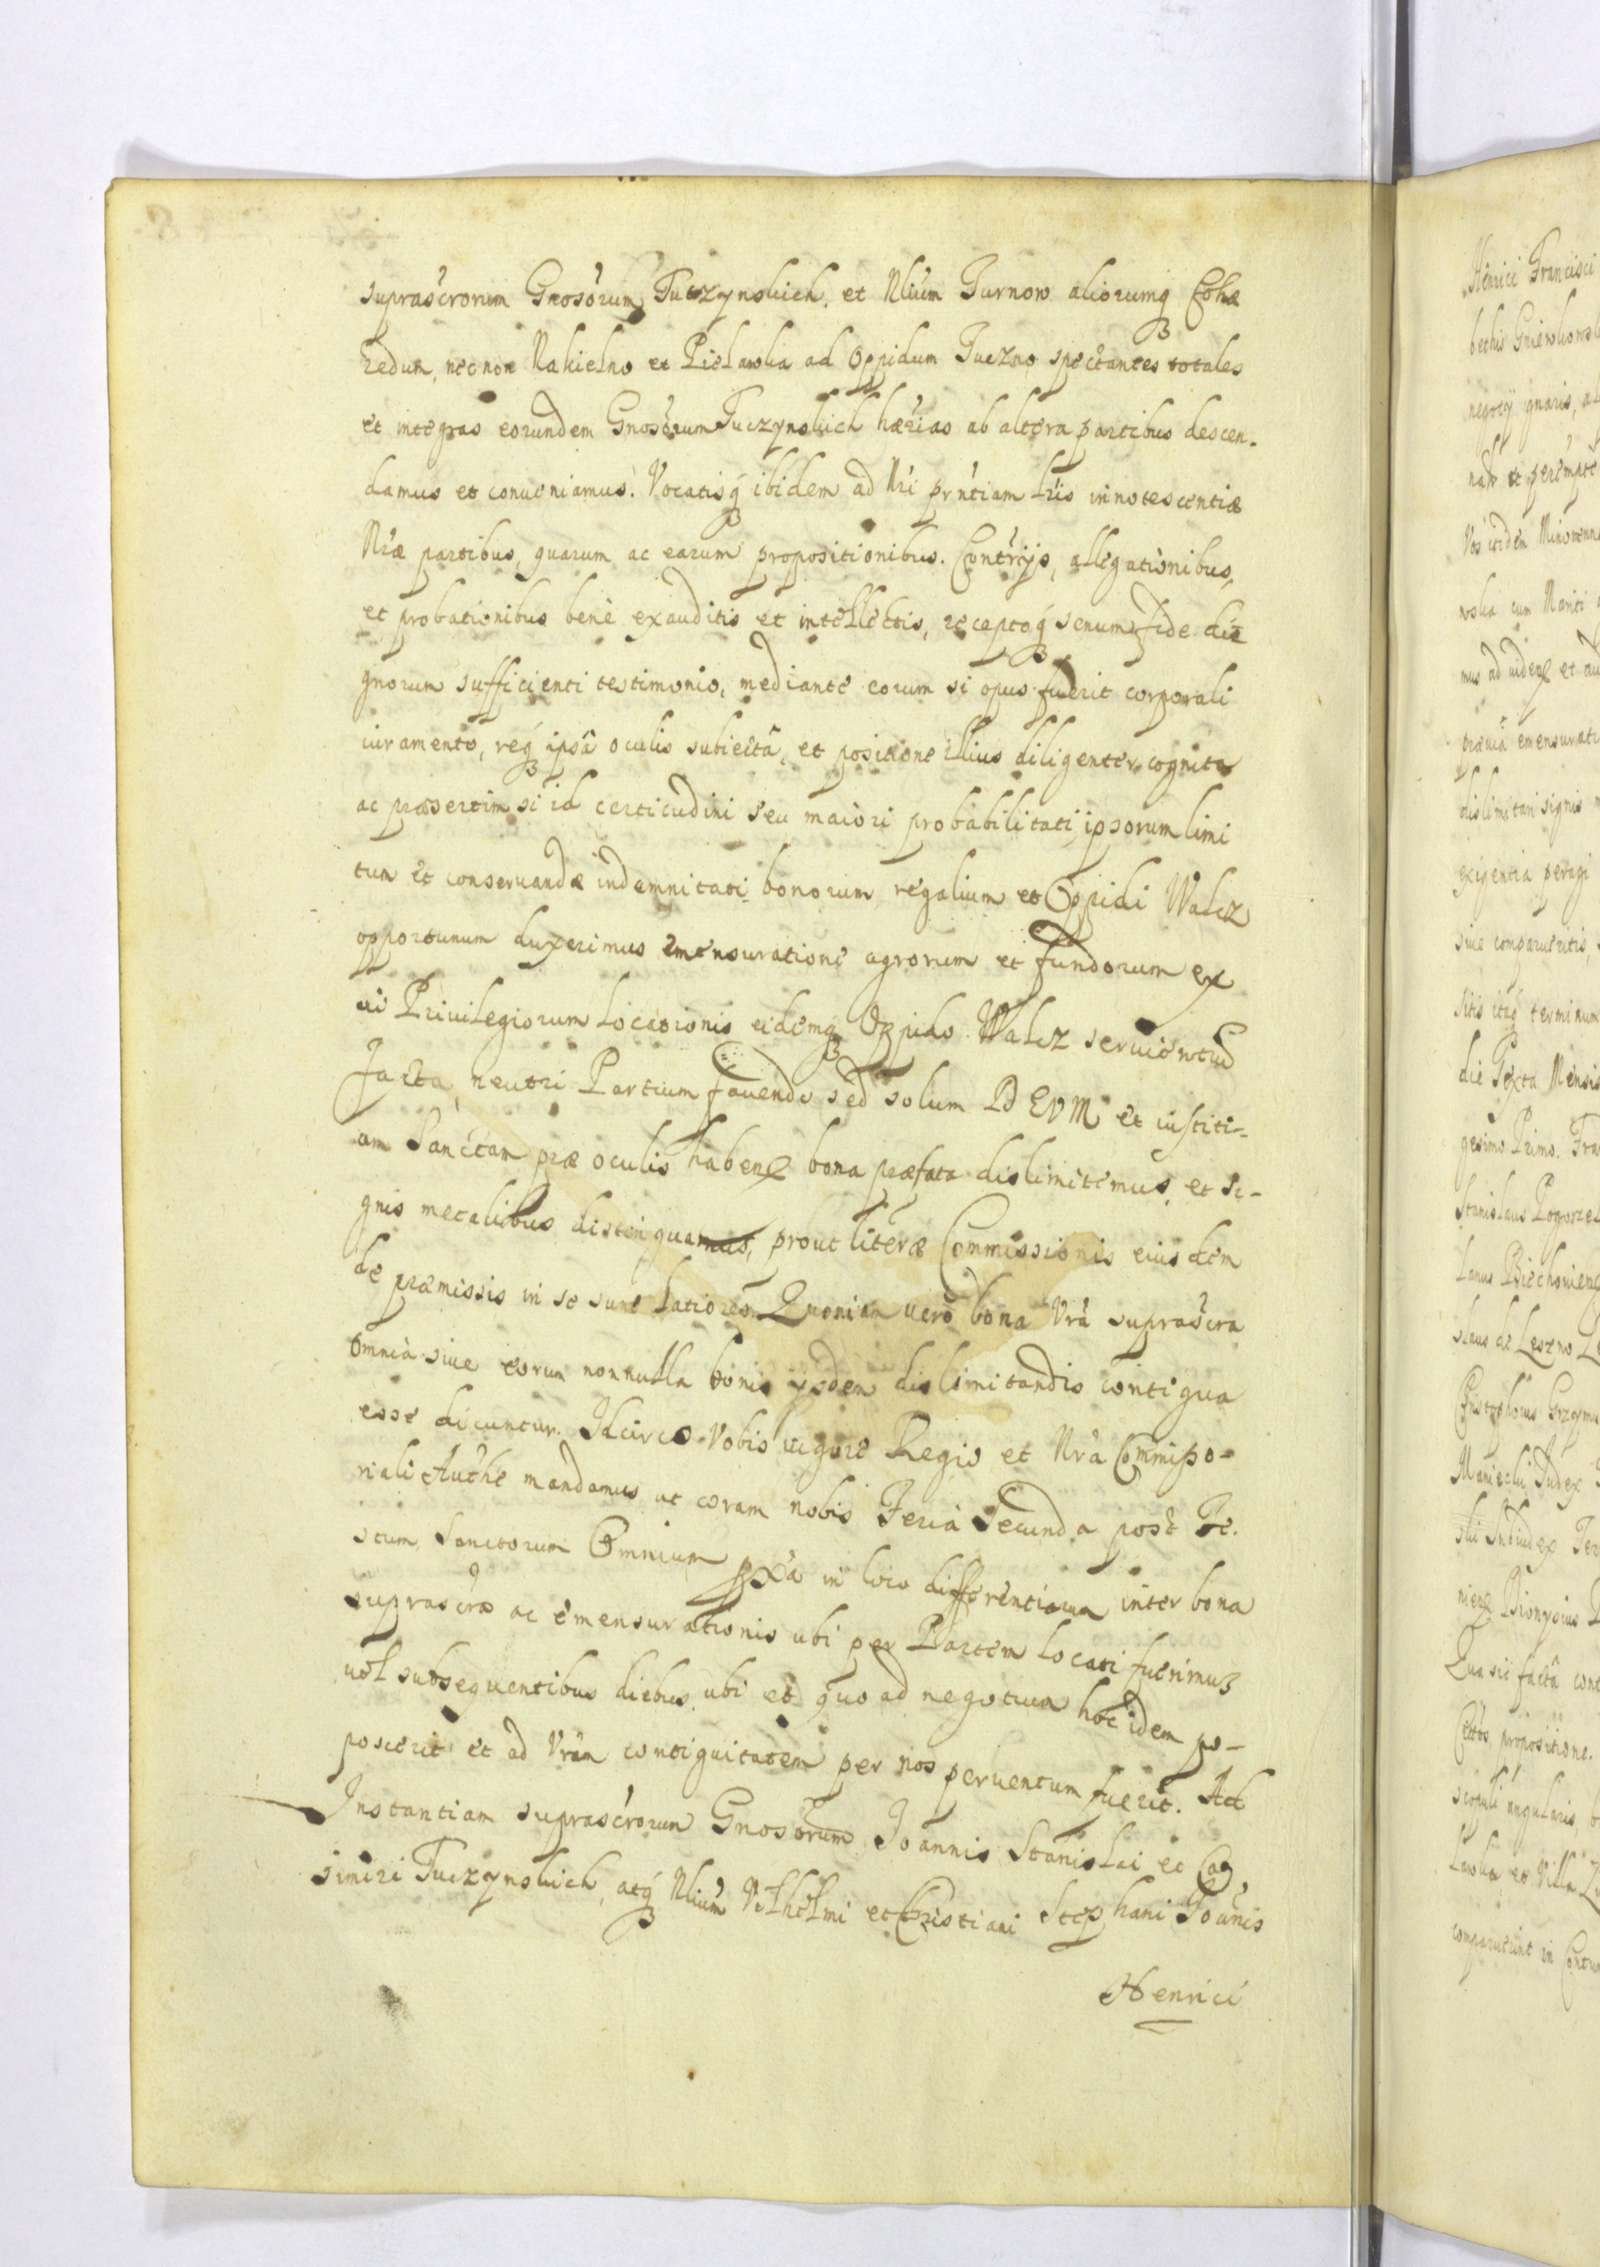 suprasc̃rorum Gnosõrum Tuczynskich, et Nliũm Turnow aliorumq₃ Cohæ
redum, necnon Nakielno et Pielawka ad Oppidum Tuczno spectantes totales
et integras eorundem Gnosõrum Tuczynskich hæřias ab altera partibus descen-
damus et conueniamus. Vocatisq₃ ibidem ad Nři prñtiam lřis innotescentiæ
Nřæ partibus, quarum ac earum propositionibus. Contřijs, allegationibus,
et probationibus benè exauditis et intellectis, receptoq₃ senum fide di
gnorum sufficienti testimonio, mediante eorum si opus fuerit corporali
iuramento, req₃ ipsâ oculis subiectâ, et positione illius diligenter cognita
ac præsertim si id certitudini seu maiori probabilitati ipsorum limi
tum et conservandæ indemnitati bonorum regalium et Oppidi Walcz
opportunum duxerimus emensuratione agrorum et fundorum ex
ui Priuilegiorum locationis eidemq₃ Oppido Walcz seruientiũ
facta, neutri Partium fauendo sed solum DEVM et iustiti-
am Sanctam præ oculis habenῳ bona præfata dislimitemus, et si-
gnis metalibus distinguamus, prout literæ Commissionis eiusdem
de præmissis in se sunt latiores. Quoniam verò bona Vřa suprasc̃ra
omnia siue eorum nonnulla bonis ijsdem dislimitandis contigua
esse dicuntur. Idcirco Vobis vigore Regio et Nřa Commisso-
riali Autħe mandamus ut coram nobis Feria Secunda post Fe-
stum Sanctorum Omnium pxa in loco differentiarum inter bona
suprasc̃ra ac emensurationis ubi per Partem locati fuerimus
uel subsequentibus diebus ubi et quo ad negotium hoc idem po-
poscerit et ad Vřam contiguitatem per nos peruentum fuerit. Ad
Instantiam suprasc̃rorum Gnosõrum Joannis Stanislai et Ca
simiri Tuczynskich, atq₃ Nliũm Vilhelmi et Christiani Stephani Joãnis
Henrici
Henrici Francisci
negotij gnaris, a
mus ad uidenῳ et au
dislimitari signis
exigentia peragi
siue comparueritis,
sitis itaq₃ terminum
die Sexta Mensis
gesimo Primo. Fra
Stanislaus Pogorzel
slaus de Leszno
Qua sic factâ cont
propositione.
scopuli angularis
lawka et Villa
comparuerunt in Contu